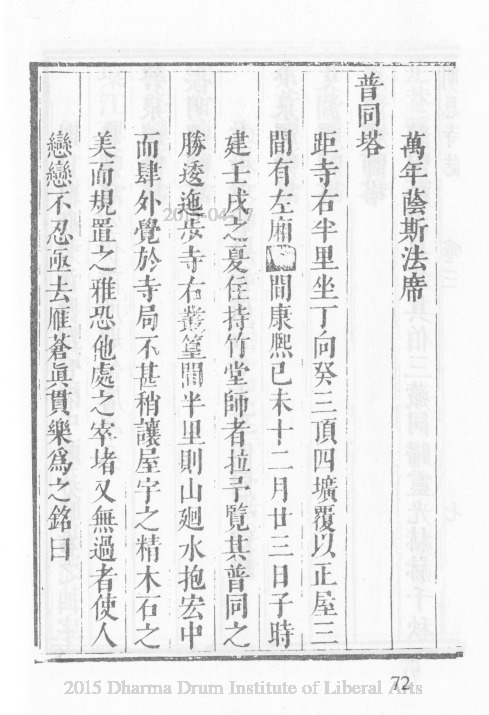 萬年蔭斯法席
普同塔
距寺右半里坐丁向癸三頂四壙覆以正屋三
間有左廂 間康熙己未十二月廿三日子時
建壬戌之夏住持竹堂師者拉予覽其普同之
勝逶迤步寺右叢篁間半里則山廻水抱宏中
而肆外覺於寺局不甚稍讓屋宇之精木石之
美而規置之雅恐他處之宰堵又無過者使人
戀戀不忍亟去雁蒼眞貫樂爲之銘曰
72
2015 Dharma Drum Institute of Liberal Arts